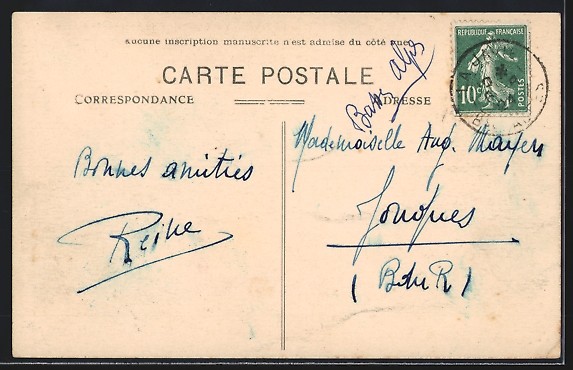 Aucune inscription manuscrite n'est admise du côté vue
CARTE POSTALE
CORRESPONDANCE
ADRESSE
Basses Alpes
REPUBLIQUE FRANÇAISE
10c
POSTES
Mademoiselle Aug. Mayen
Bonnes amitiés
Jouques
Reine
(B du R)